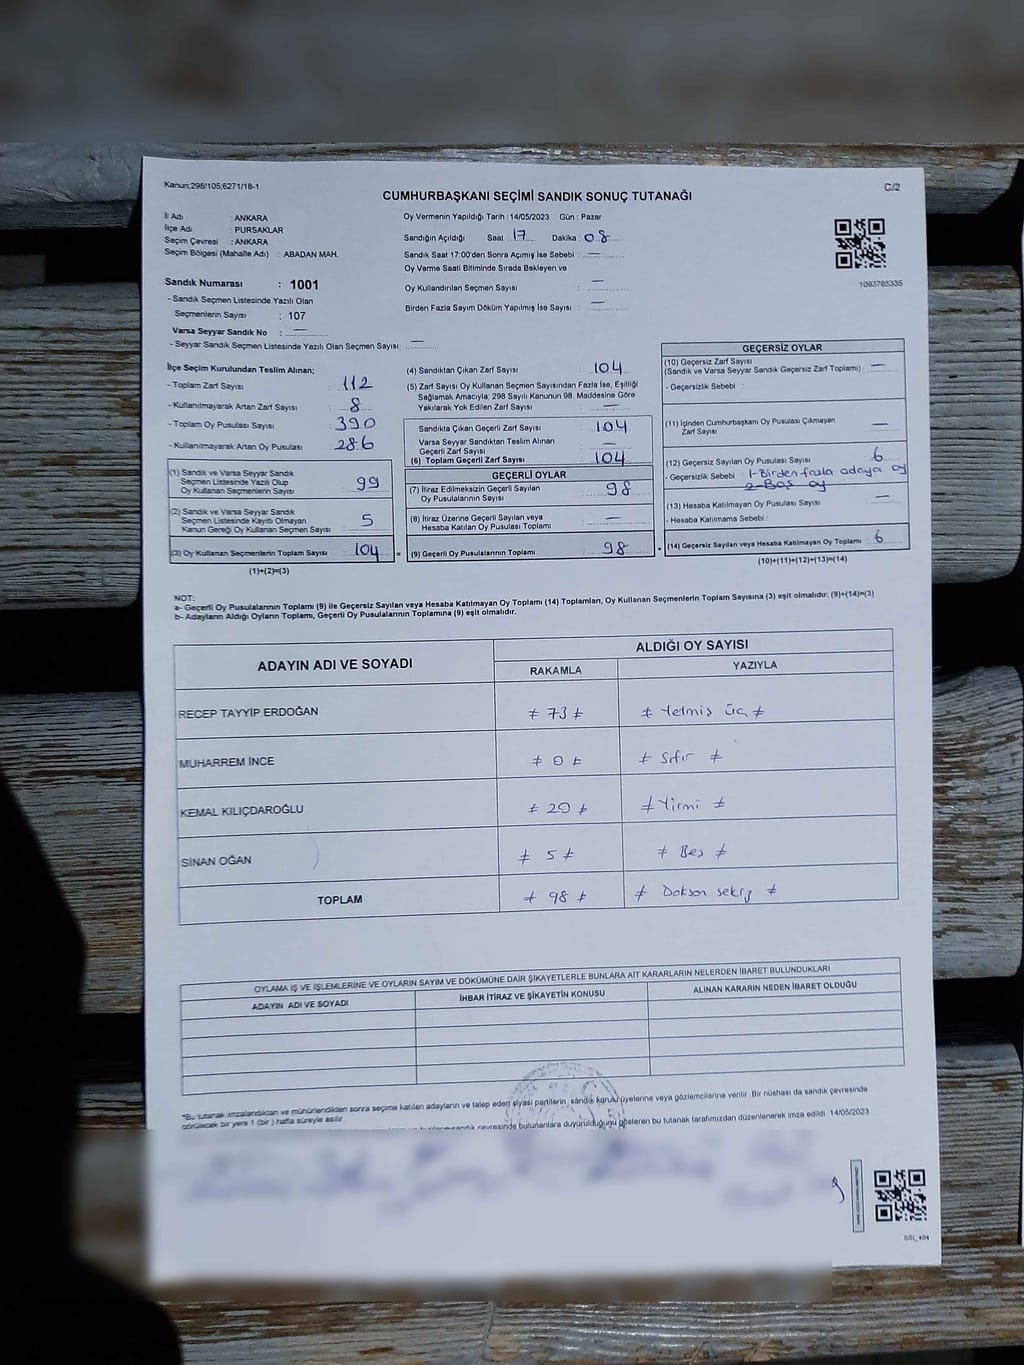 Kanun;298/105;6271/18-1
C/2
CUMHURBAŞKANI SEÇİMİ SANDIK SONUÇ TUTANAĞI
İl Adı : ANKARA
İlçe Adı : PURSAKLAR
Seçim Çevresi : ANKARA
Seçim Bölgesi (Mahalle Adı) : ABADAN MAH.
Oy Vermenin Yapıldığı Tarih : 14/05/2023 Gün : Pazar
Sandığın Açıldığı Saat 17 Dakika 08
Sandık Saat 17:00'den Sonra Açmış İse Sebebi : —
Oy Verme Saati Bitiminde Sırada Bekleyen ve
Oy Kullandırılan Seçmen Sayısı : —
Birden Fazla Sayım Döküm Yapılmış İse Sayısı : —
1093765335
Sandık Numarası : 1001
- Sandık Seçmen Listesinde Yazılı Olan
Seçmenlerin Sayısı : 107
Varsa Seyyar Sandık No : —
- Seyyar Sandık Seçmen Listesinde Yazılı Olan Seçmen Sayısı: —
İlçe Seçim Kurulundan Teslim Alınan;
- Toplam Zarf Sayısı 112
- Kullanılmayarak Artan Zarf Sayısı 8
- Toplam Oy Pusulası Sayısı 390
- Kullanılmayarak Artan Oy Pusulası 286
(1) Sandık ve Varsa Seyyar Sandık
Seçmen Listesinde Yazılı Olup
Oy Kullanan Seçmenlerin Sayısı 99
(2) Sandık ve Varsa Seyyar Sandık
Seçmen Listesinde Kayıtlı Olmayan
Kanun Gereği Oy Kullanan Seçmen Sayısı 5
(3) Oy Kullanan Seçmenlerin Toplam Sayısı 104 =
(1)+(2)=(3)
(4) Sandıktan Çıkan Zarf Sayısı : 104
(5) Zarf Sayısı Oy Kullanan Seçmen Sayısından Fazla İse, Eşitliği
Sağlamak Amacıyla; 298 Sayılı Kanunun 98. Maddesine Göre
Yakılarak Yok Edilen Zarf Sayısı : —
Sandıkta Çıkan Geçerli Zarf Sayısı : 104
Varsa Seyyar Sandıktan Teslim Alınan
Geçerli Zarf Sayısı : —
(6) Toplam Geçerli Zarf Sayısı : 104
GEÇERLİ OYLAR
(7) İtiraz Edilmeksizin Geçerli Sayılan
Oy Pusulalarının Sayısı : 98
(8) İtiraz Üzerine Geçerli Sayılan veya
Hesaba Katılan Oy Pusulası Toplamı : —
(9) Geçerli Oy Pusulalarının Toplamı : 98 +
GEÇERSİZ OYLAR
(10) Geçersiz Zarf Sayısı
(Sandık ve Varsa Seyyar Sandık Geçersiz Zarf Toplamı) : —
- Geçersizlik Sebebi :
(11) İçinden Cumhurbaşkanı Oy Pusulası Çıkmayan
Zarf Sayısı : —
(12) Geçersiz Sayılan Oy Pusulası Sayısı : 6
- Geçersizlik Sebebi 1-Birden fazla adaya oy
2-Boş oy
(13) Hesaba Katılmayan Oy Pusulası Sayısı : —
- Hesaba Katılmama Sebebi :
(14) Geçersiz Sayılan veya Hesaba Katılmayan Oy Toplamı : 6
(10)+(11)+(12)+(13)=(14)
NOT:
a- Geçerli Oy Pusulalarının Toplamı (9) ile Geçersiz Sayılan veya Hesaba Katılmayan Oy Toplamı (14) Toplamları, Oy Kullanan Seçmenlerin Toplam Sayısına (3) eşit olmalıdır. (9)+(14)=(3)
b- Adayların Aldığı Oyların Toplamı, Geçerli Oy Pusulalarının Toplamına (9) eşit olmalıdır.
ADAYIN ADI VE SOYADI ALDIĞI OY SAYISI
RAKAMLA YAZIYLA
RECEP TAYYİP ERDOĞAN ≠ 73 ≠ ≠ Yetmiş üç ≠
MUHARREM İNCE ≠ 0 ≠ ≠ Sıfır ≠
KEMAL KILIÇDAROĞLU ≠ 20 ≠ ≠ Yirmi ≠
SİNAN OĞAN ≠ 5 ≠ ≠ Beş ≠
TOPLAM ≠ 98 ≠ ≠ Doksan sekiz ≠
OYLAMA İŞ VE İŞLEMLERİNE VE OYLARIN SAYIM VE DÖKÜMÜNE DAİR ŞİKAYETLERLE BUNLARA AİT KARARLARIN NELERDEN İBARET BULUNDUKLARI
ADAYIN ADI VE SOYADI İHBAR İTİRAZ VE ŞİKAYETİN KONUSU ALINAN KARARIN NEDEN İBARET OLDUĞU
*Bu tutanak imzalandıktan ve mühürlendikten sonra seçime katılan adayların ve talep eden siyasi partilerin, sandık kurulu üyelerine veya gözlemcilerine verilir. Bir nüshası da sandık çevresinde
görülecek bir yere 1 (bir) hafta süreyle asılır.
sandık çevresinde bulunanlara duyurulduğunu gösteren bu tutanak tarafımızdan düzenlenerek imza edildi. 14/05/2023